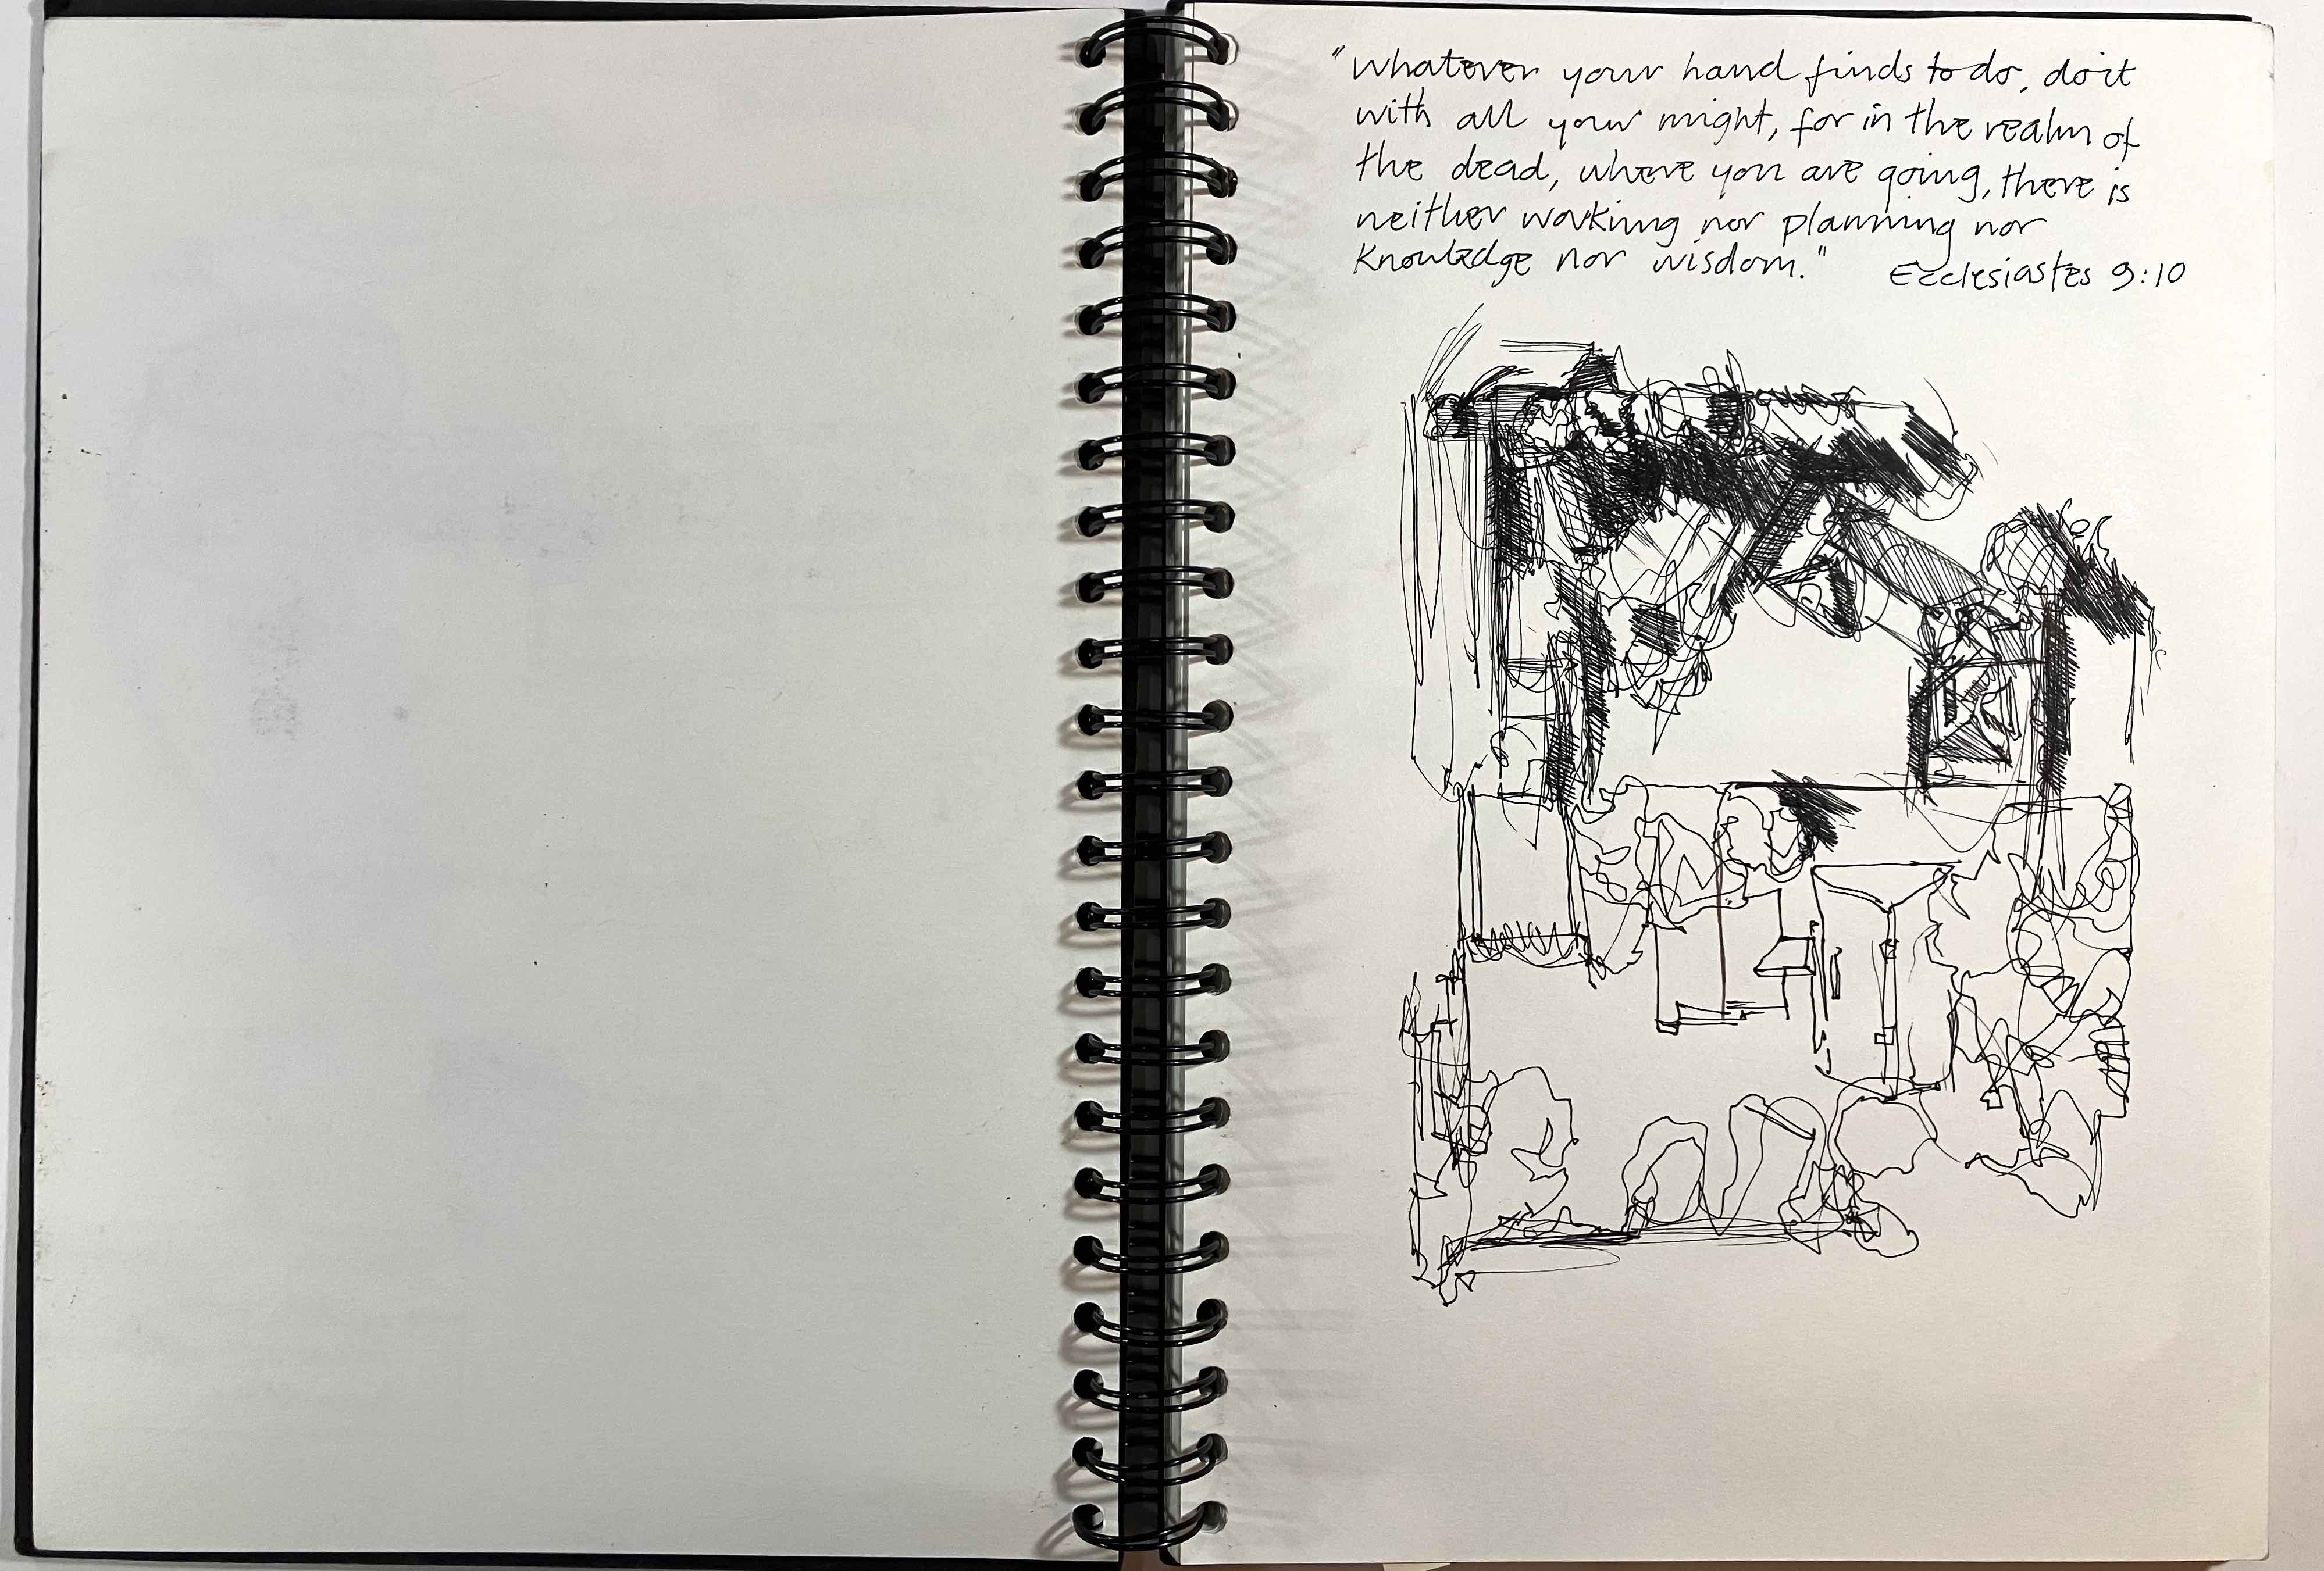 "Whatever your hand finds to do, do it
with all your might, for in the realm of
the dead, where you are going, there is
neither working nor planning nor
knowledge nor wisdom."
Ecclesiastes 9:10